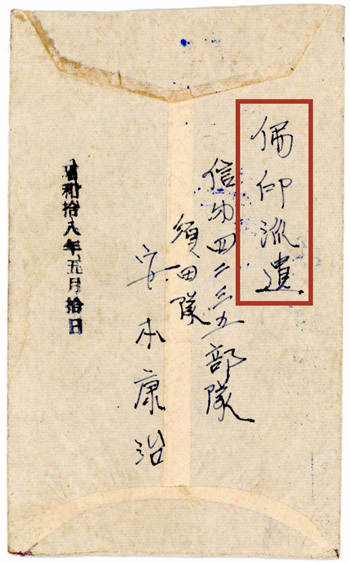 佛印派遣
信第四二三五部隊
須田隊
安本康治
昭和拾八年五月拾日